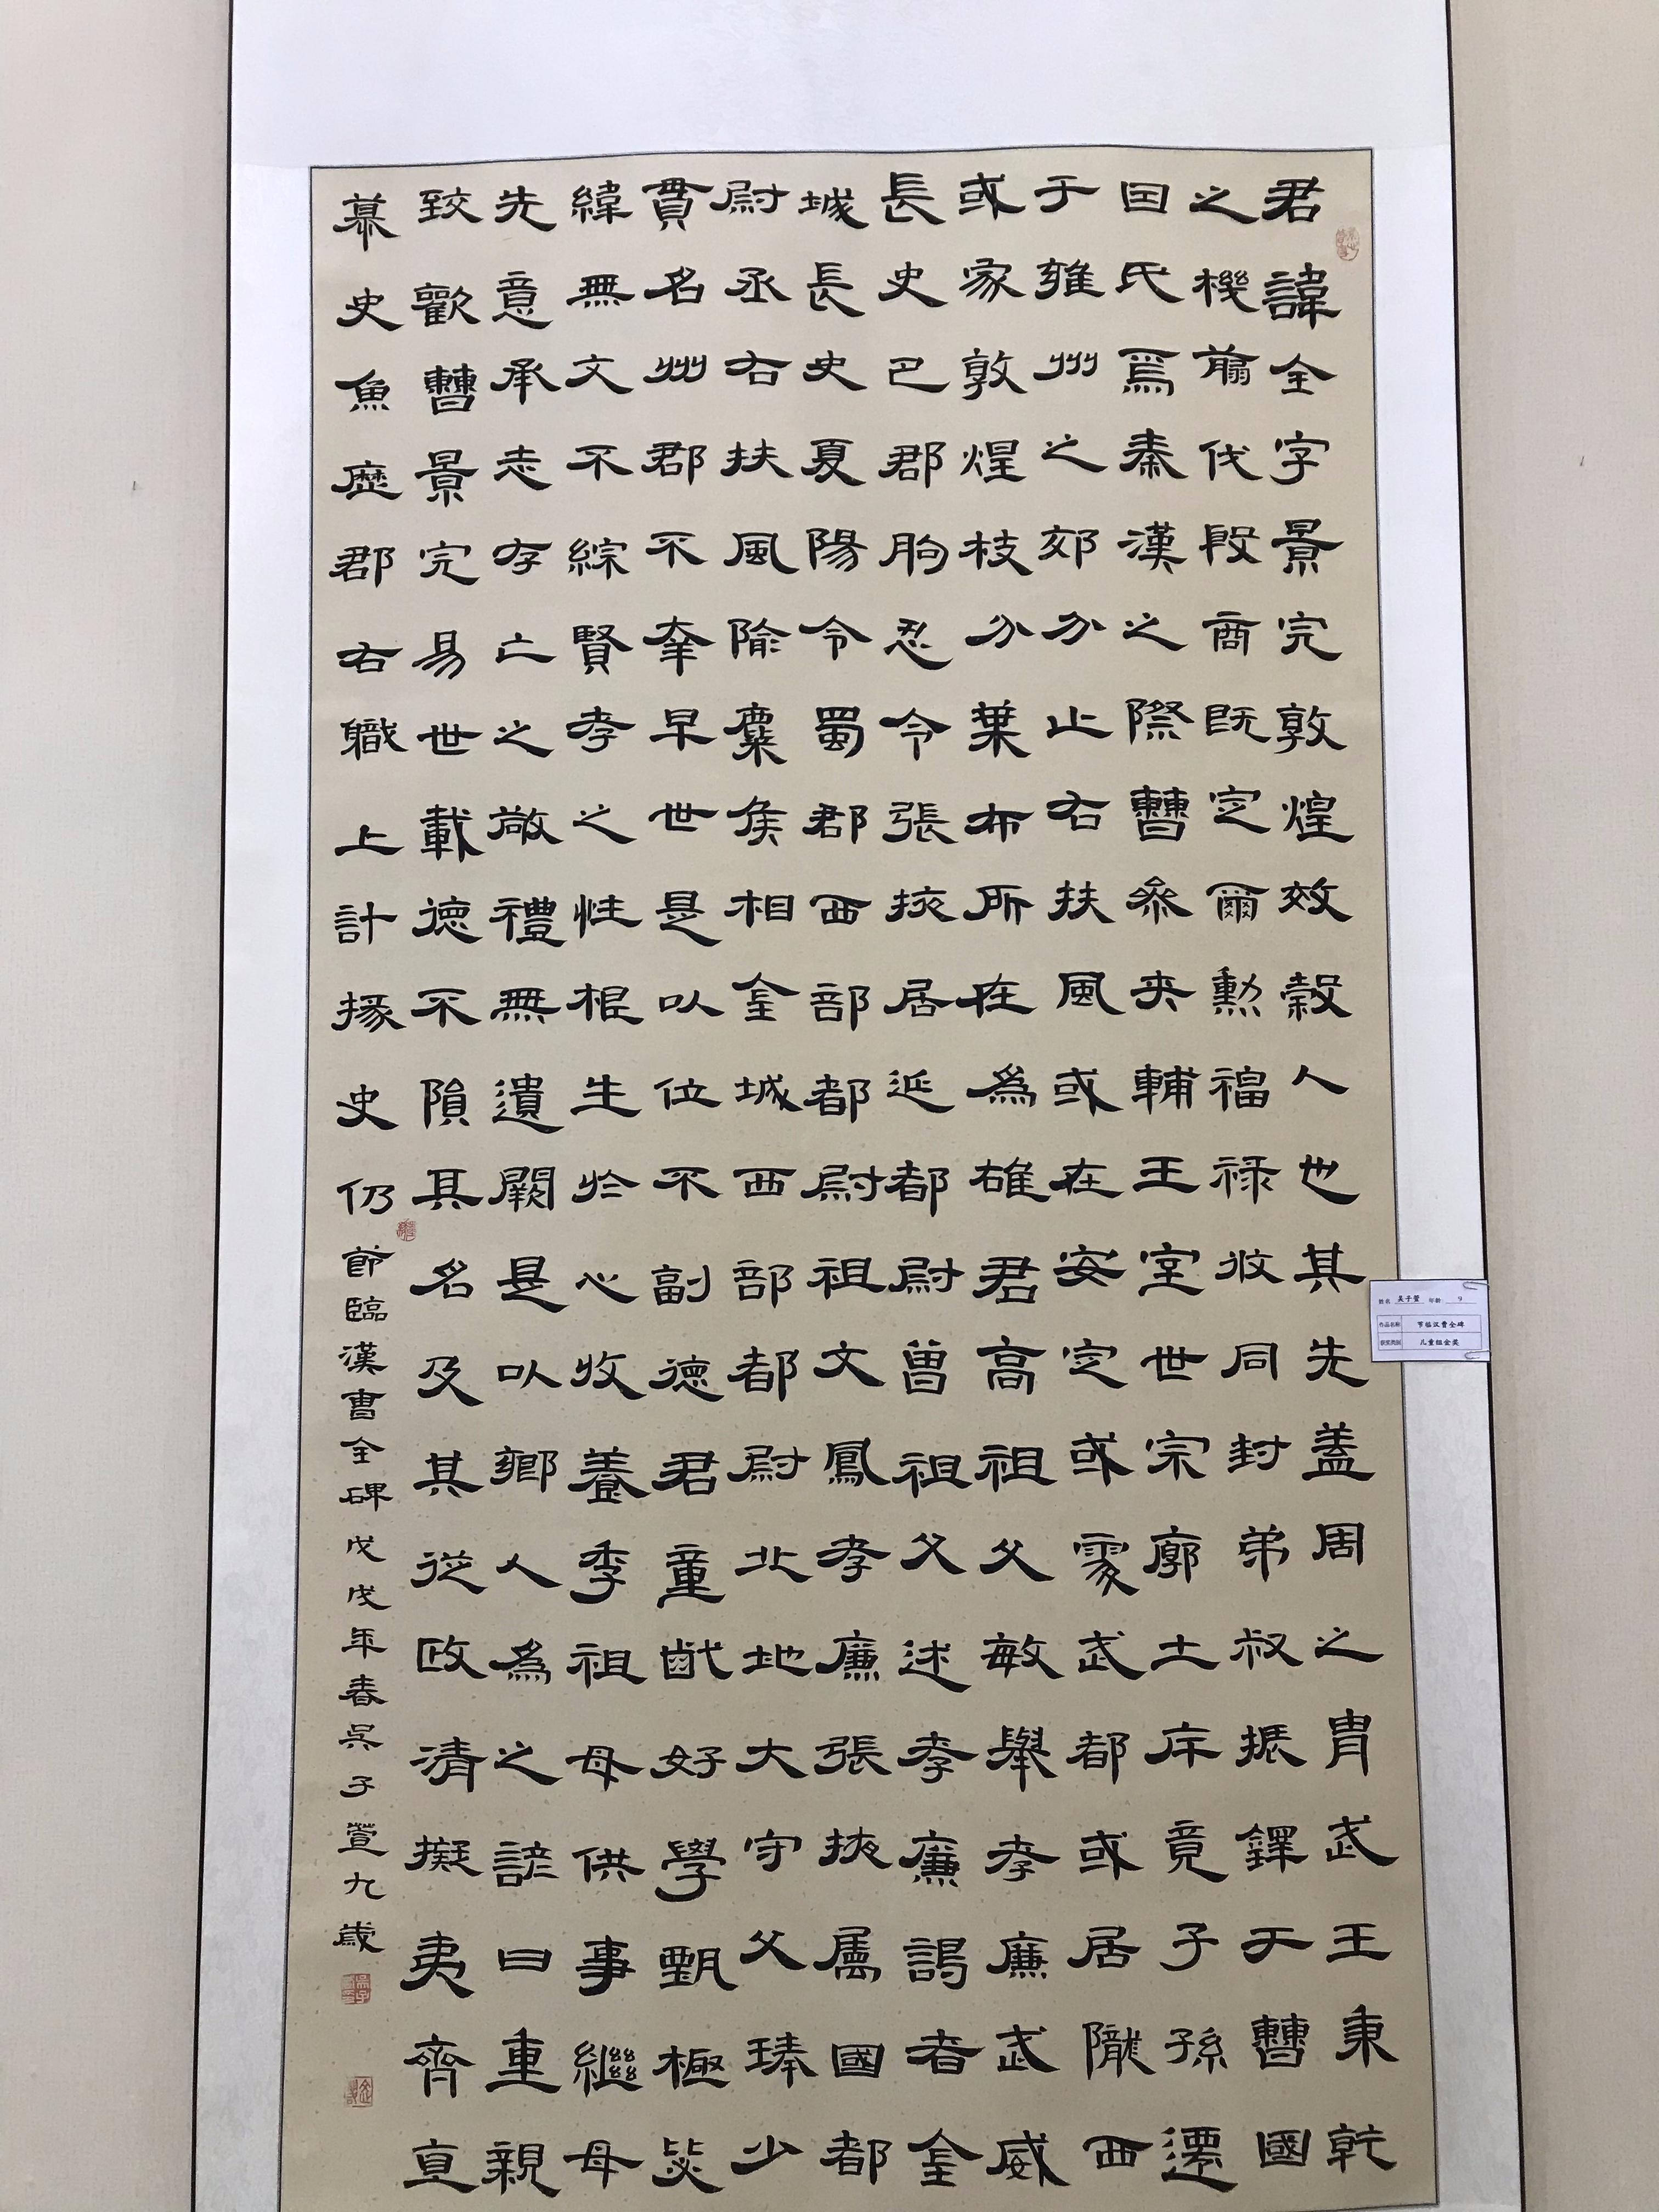 君諱全字景完敦煌效穀人也其先蓋周之胄武王秉乾
之機翦伐殷商既定爾勳福祿攸同封弟叔振鐸于曹國
因氏焉秦漢之際曹參夾輔王室世宗廓土斥竟子孫遷
于雍州之郊分止右扶風或在安定或處武都或居隴西
或家敦煌枝分葉布所在為雄君高祖父敏舉孝廉武威
長史巴郡朐忍令張掖居延都尉曾祖父述孝廉謁者金
城長史夏陽令蜀郡西部都尉祖文鳳孝廉張掖屬國都
尉丞右扶風隃麋侯相金城西部都尉北地大守父琫少
貫名州郡不幸早世是以位不副德君童齔好學甄極毖
緯無文不綜賢孝之性根生於心收養季祖母供事繼母
先意承志存亡之敬禮無遺闕是以鄉人為之諺曰重親
致歡曹景完易世載德不隕其名及其從政清擬夷齊直
慕史魚歷郡右職上計掾史仍
節臨漢曹全碑戊戌年春吳子萱九歲
姓名 吴子萱 年龄 9
作品名称 节临汉曹全碑
获奖类别 儿童组金奖